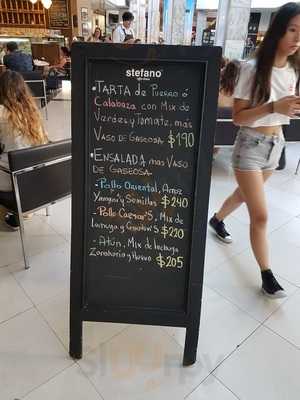 stefano
TARTA de Puerro ó
Calabaza con Mix de
Verdes y Tomate, mas
Vaso de Gaseosa. $190
ENSALADA mas Vaso
de Gaseosa-
- Pollo Oriental, Arroz
Yamaní y Semillas $240
- Pollo Caesar'S, Mix de
Lechuga y Croutons $220
- Atún, Mix de lechuga
Zanahoria y Huevo $205